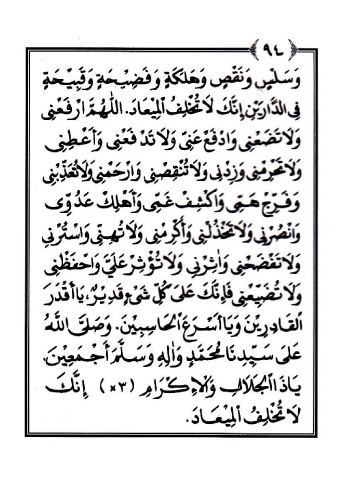 ﴿٩٤﴾
وَسَلْسٍ وَنَقْصٍ وَهَلَكَةٍ وَفَضِيْحَةٍ وَقَبِيْحَةٍ
فِى الدَّارَيْنِ إِنَّكَ لَا تُخْلِفُ الْمِيْعَادَ. اَللّٰهُمَّ ارْفَعْنِى
وَلَا تَضَعْنِى وَادْفَعْ عَنِّى وَلَا تَدْفَعْنِى وَأَعْطِنِى
وَلَا تَحْرِمْنِى وَزِدْنِى وَلَا تُنْقِصْنِى وَارْحَمْنِى وَلَا تُعَذِّبْنِى
وَفَرِّجْ هَمِّى وَاكْشِفْ غَمِّى وَأَهْلِكْ عَدُوِّى
وَانْصُرْنِى وَلَا تَخْذُلْنِى وَأَكْرِمْنِى وَلَا تُهِنِّى وَاسْتُرْنِى
وَلَا تَفْضَحْنِى وَاٰثِرْنِى وَلَا تُؤْثِرْ عَلَيَّ وَاحْفَظْنِى
وَلَا تُضَيِّعْنِى فَإِنَّكَ عَلَى كُلِّ شَيْءٍ قَدِيْرٌ، يَا أَقْدَرَ
الْقَادِرِيْنَ وَيَا أَسْرَعَ الْحَاسِبِيْنَ. وَصَلَّى اللّٰهُ
عَلَى سَيِّدِنَا مُحَمَّدٍ وَاٰلِهِ وَسَلَّمَ أَجْمَعِيْنَ.
يَاذَا الْجَلَالِ وَالْإِكْرَامِ (٣×) إِنَّكَ
لَا تُخْلِفُ الْمِيْعَادَ.